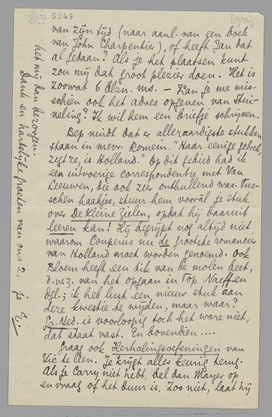 5249
van zijn tijd (naar aanl. van een boek
van John Charpentier), of heeft Jan dat
al gedaan? Als je het plaatsen kunt
zou mij dat groot plezier doen. Het is
zoowat 6 blzn. ms. — Kan je me mis-
schien ook het adres opgeven van Stui-
veling? Ik wil hem een briefje schrijven.
Bep vindt dat er alleraardigste stukken
staan in mevr. Romein. "Naar eenige gebrek,
zegt ze, is Holland." Op dit gebied had ik
een uitvoerige correspondentie met Van
Leeuwen, die ook zeer onthullend was. Tus-
schen haakjes, stuur hem vooral je stuk
over De Kleine Zielen, opdat hij daaruit
leeren kan! Hij begrijpt nog altijd niet
waarom Couperus nu de grootste romancier
van Holland moet worden genoemd. Ook
Bloem heeft een tik van de molen beet,
d.w.z. van het opgaan in Top Naeff en
dgl.; ik heb lust een nieuw stuk aan
deze kwestie te wijden, maar waar?
Gr. Ned. is voorloopig toch het ware niet,
dat staat vast. En bovendien....
Graag ook Herhalingsoefeningen van
Vic te leen. Je krijgt alles keurig terug.
Als je Carry niet hebt, bel dan Mayer op
en vraag of het duur is. Zoo niet, laat hij
het mij dan bezorgen.
Dank en hartelijke groeten van ons 2. je E.